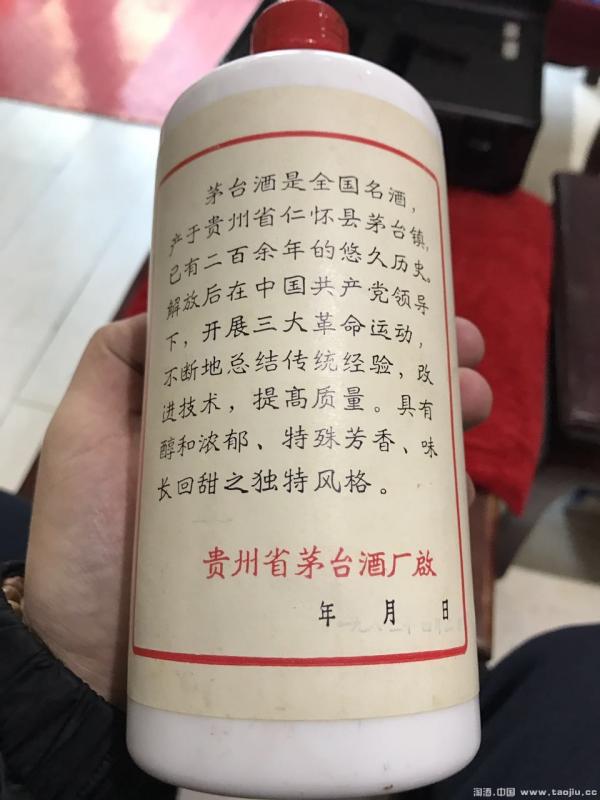 茅台酒是全国名酒，
产于贵州省仁怀县茅台镇，
已有二百余年的悠久历史。
解放后在中国共产党领导
下，开展三大革命运动，
不断地总结传统经验，改
进技术，提高质量。具有
醇和浓郁、特殊芳香、味
长回甜之独特风格。
贵州省茅台酒厂啟
年 月 日
淘酒.中国 www.taojiu.cc